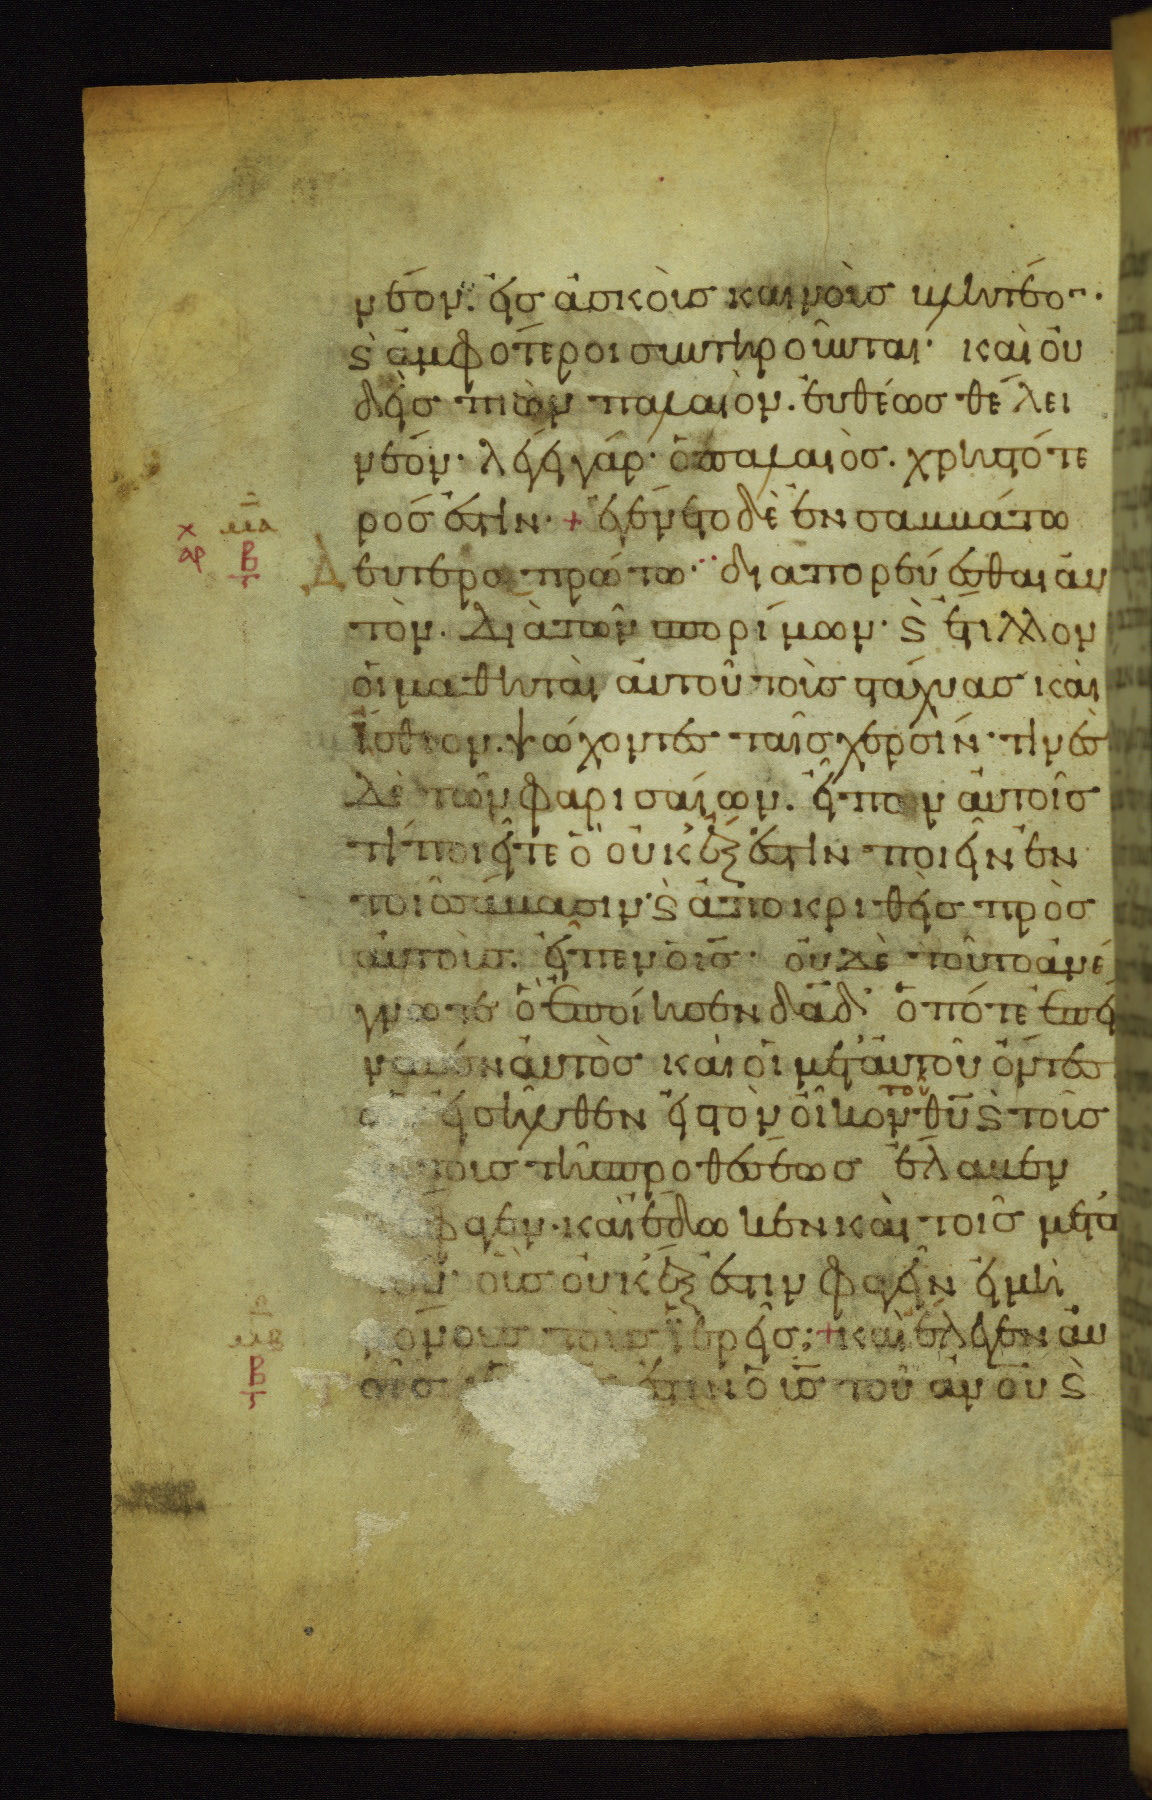 νέον· εἰς ἀσκοὺς καινοὺς βλητέον·
ϗ ἀμφότεροι συντηροῦνται· καὶ οὐ
δεὶς πιὼν παλαιὸν· εὐθέως θέλει
νέον· λέγει γάρ· ὁ παλαιὸς· χρηστότε
ρός ἐστιν· + ἐγένετο δὲ ἐν σαββάτω
χ αρ μα β
Δευτεροπρώτω· διαπορεύεσθαι αὐ
τὸν· διὰ τῶν σπορίμων· ϗ ἔτιλλον
οἱ μαθηταὶ αὐτοῦ τοὺς στάχυας καὶ
ἤσθιον· ψώχοντες ταῖς χερσίν· τινὲς
δὲ τῶν φαρισαίων· εἶπον αὐτοῖς
τί ποιεῖτε ὃ οὐκ ἔξεστιν ποιεῖν ἐν
τοῖς σάββασιν· ϗ ἀποκριθεὶς πρὸς
αὐτοὺς· εἶπεν ὁ ις· οὐδὲ τοῦτο ἀνέ
γνωτε ὃ ἐποίησεν δαδ· ὁπότε ἐπεί
νασεν αὐτὸς καὶ οἱ μετ' αὐτοῦ ὄντες
εἰσῆλθεν εἰς τὸν οἶκον τοῦ θυ ϗ τοὺς
τους τῆς προθέσεως ἔλαβεν
ἔφαγεν· καὶ ἔδωκεν καὶ τοῖς μετ'
οὓς οὐκ ἔξεστιν φαγεῖν εἰ μὴ
μόνους τοὺς ἱερεῖς; + καὶ ἔλεγεν αὐ
μβ β
τοῖς ἐστιν ὁ υς τοῦ ανου ϗ